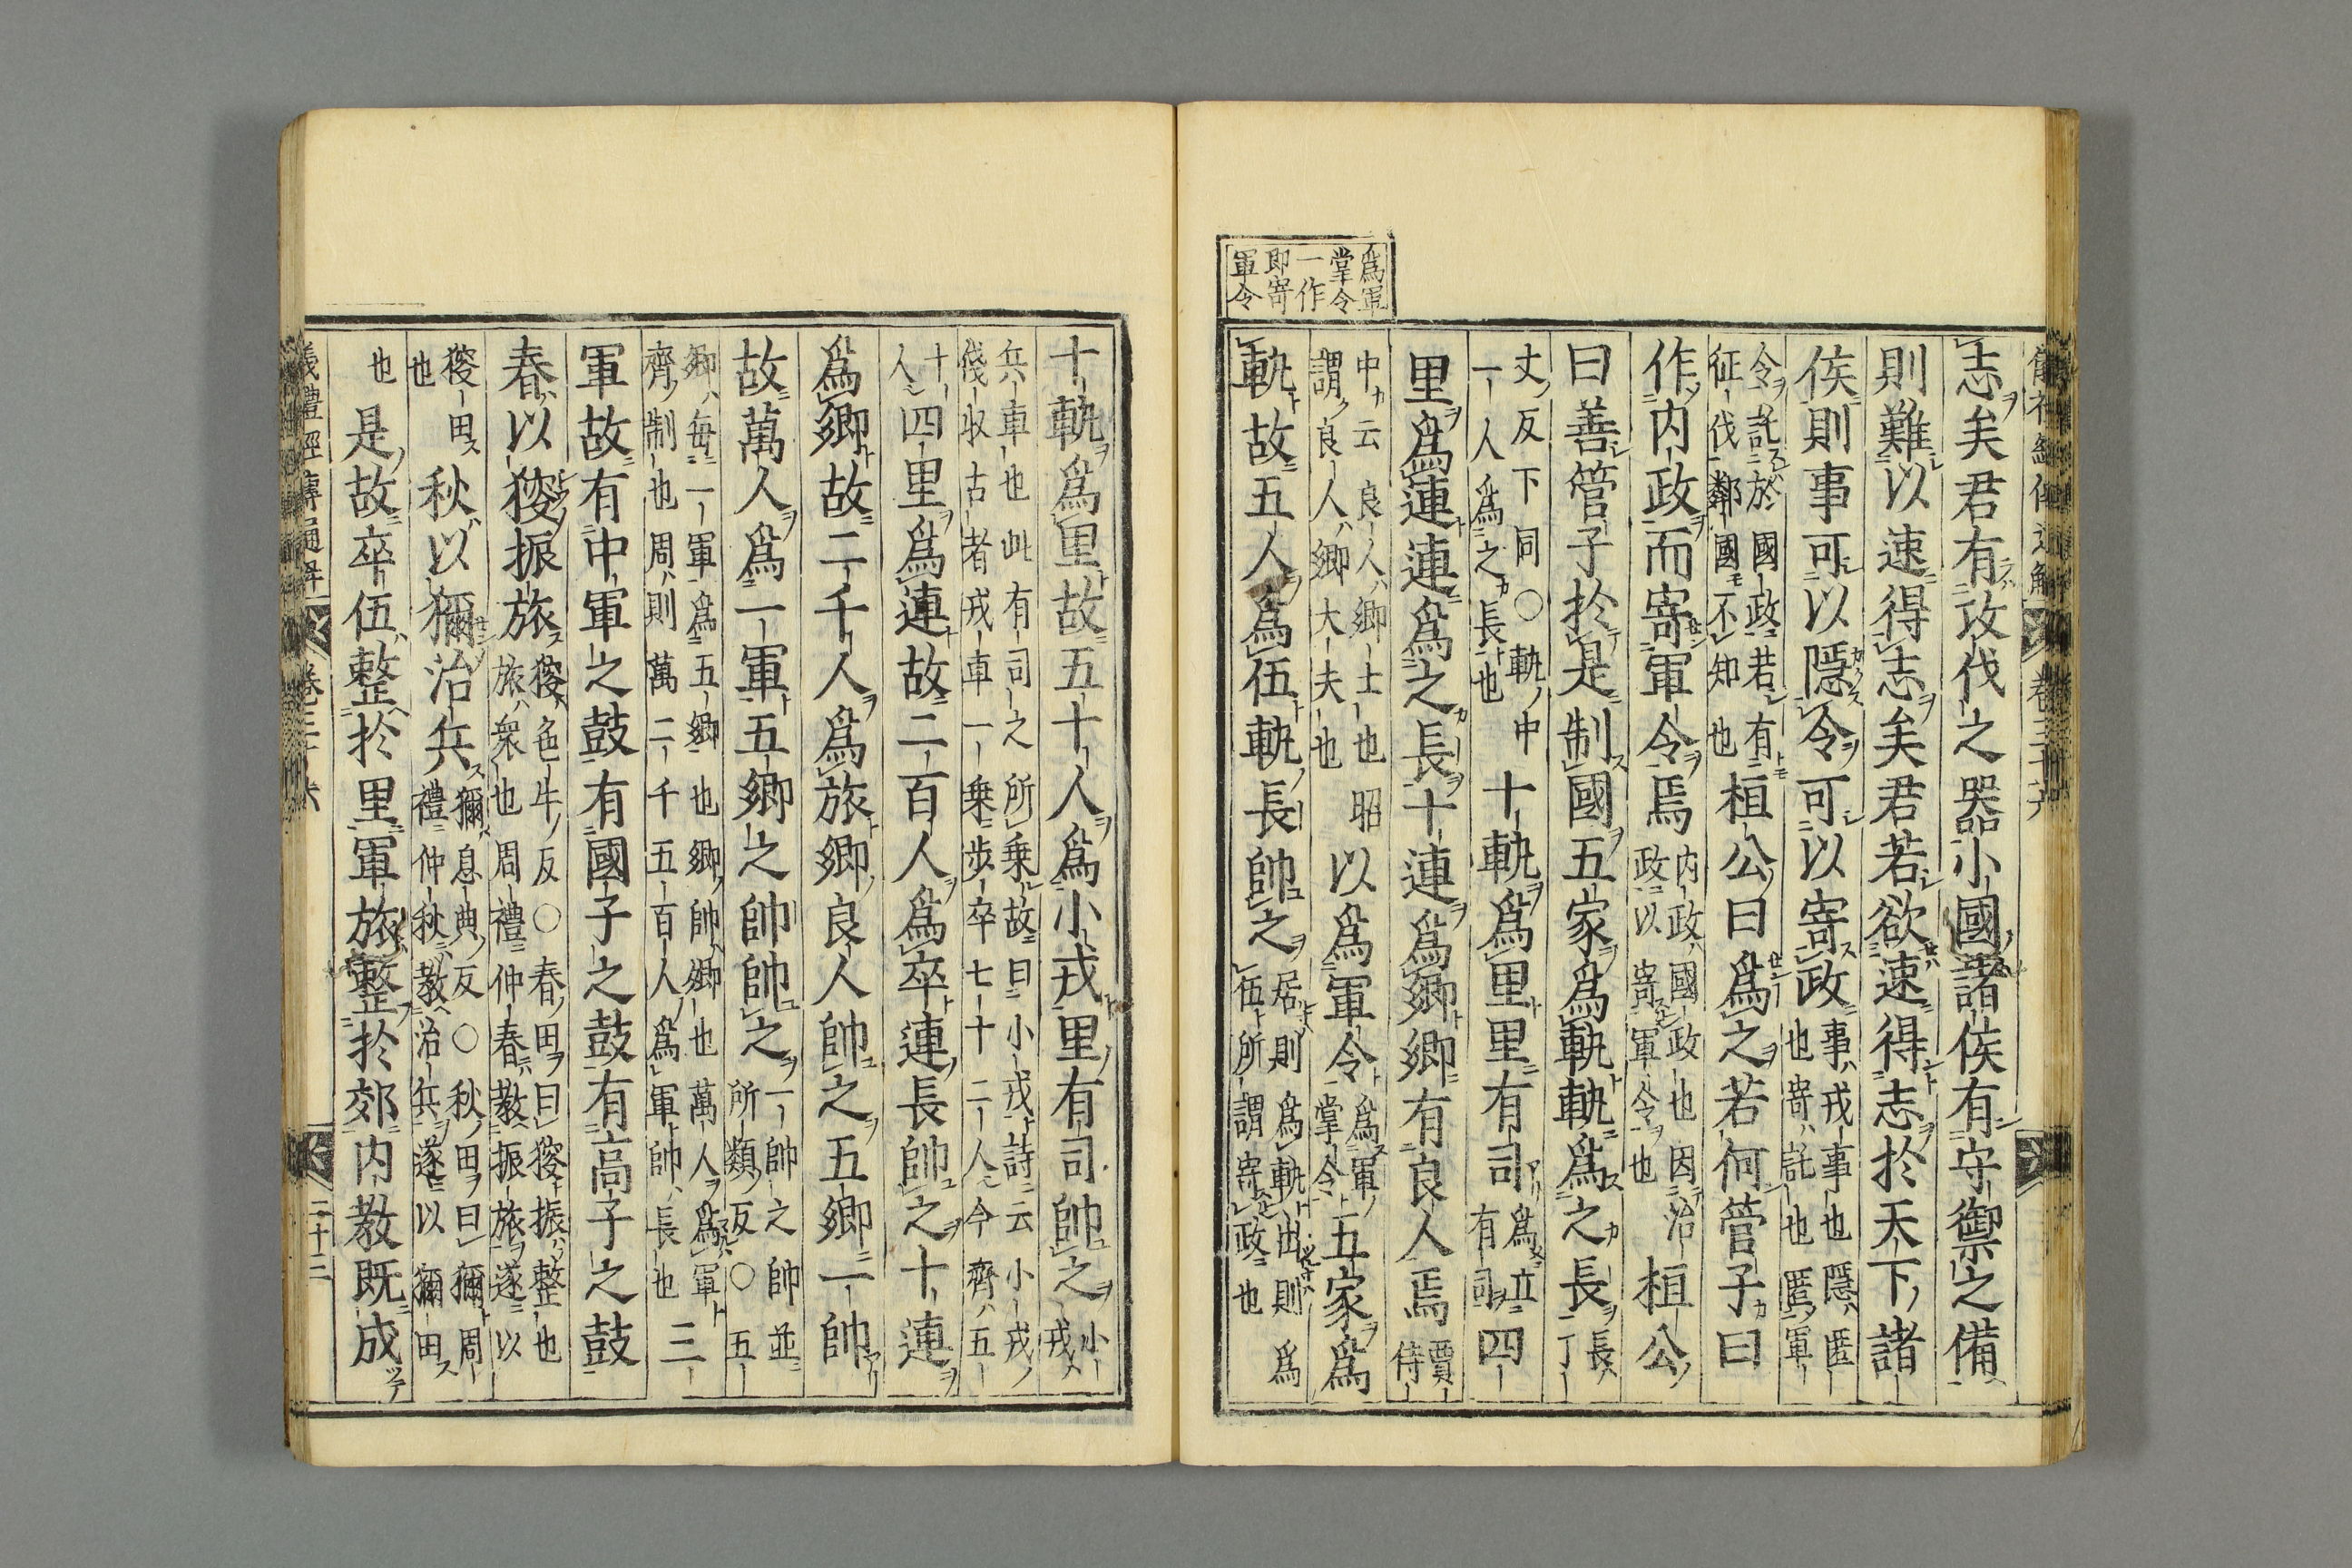 儀禮經傳通解 卷三十六
爲軍
掌令
一作
即寄
軍令
志矣君有攻伐之器小國諸侯有守禦之備
則難以速得志矣君若欲速得志於天下諸
侯則事可以隱令可以寄政事戎事也隱匿也寄託也匿軍
令託於國政若有征伐鄰國不知也桓公曰爲之若何管子曰
作内政而寄軍令焉内政國政也因治政以寄軍令也桓公
曰善管子於是制國五家爲軌軌爲之長長丁
丈反下同〇軌中一人爲之長也十軌爲里里有司爲立有司四
里爲連連爲之長十連爲鄉鄉有良人焉賈侍
中云良人鄉士也昭謂良人鄉大夫也以爲軍令爲軍掌令五家爲
軌故五人爲伍軌長帥之居則爲軌出則爲伍所謂寄政也
十軌爲里故五十人爲小戎里有司帥之小戎
兵車也此有司之所乗故曰小戎詩云小戎俴收古者戎車一乗步卒七十二人今齊五
十人四里爲連故二百人爲卒連長帥之十連
爲鄉故二千人爲旅鄉良人帥之五鄉一帥
故萬人爲一軍五鄉之帥帥之一帥之帥並所類反〇五
鄉每一軍爲五鄉也鄉帥鄉也萬人爲軍齊制也周則萬二千五百人爲軍帥長也三
軍故有中軍之鼓有國子之鼓有高子之鼓
春以獀振旅獀色牛反〇春田曰獀振整也旅衆也周禮仲春教振旅遂以
獀田也秋以獮治兵獮息典反〇秋田曰獮周禮仲秋教治兵遂以獮田
也是故卒伍整於里軍旅整於郊内教既成
儀禮經傳通解 卷三十六 二十二